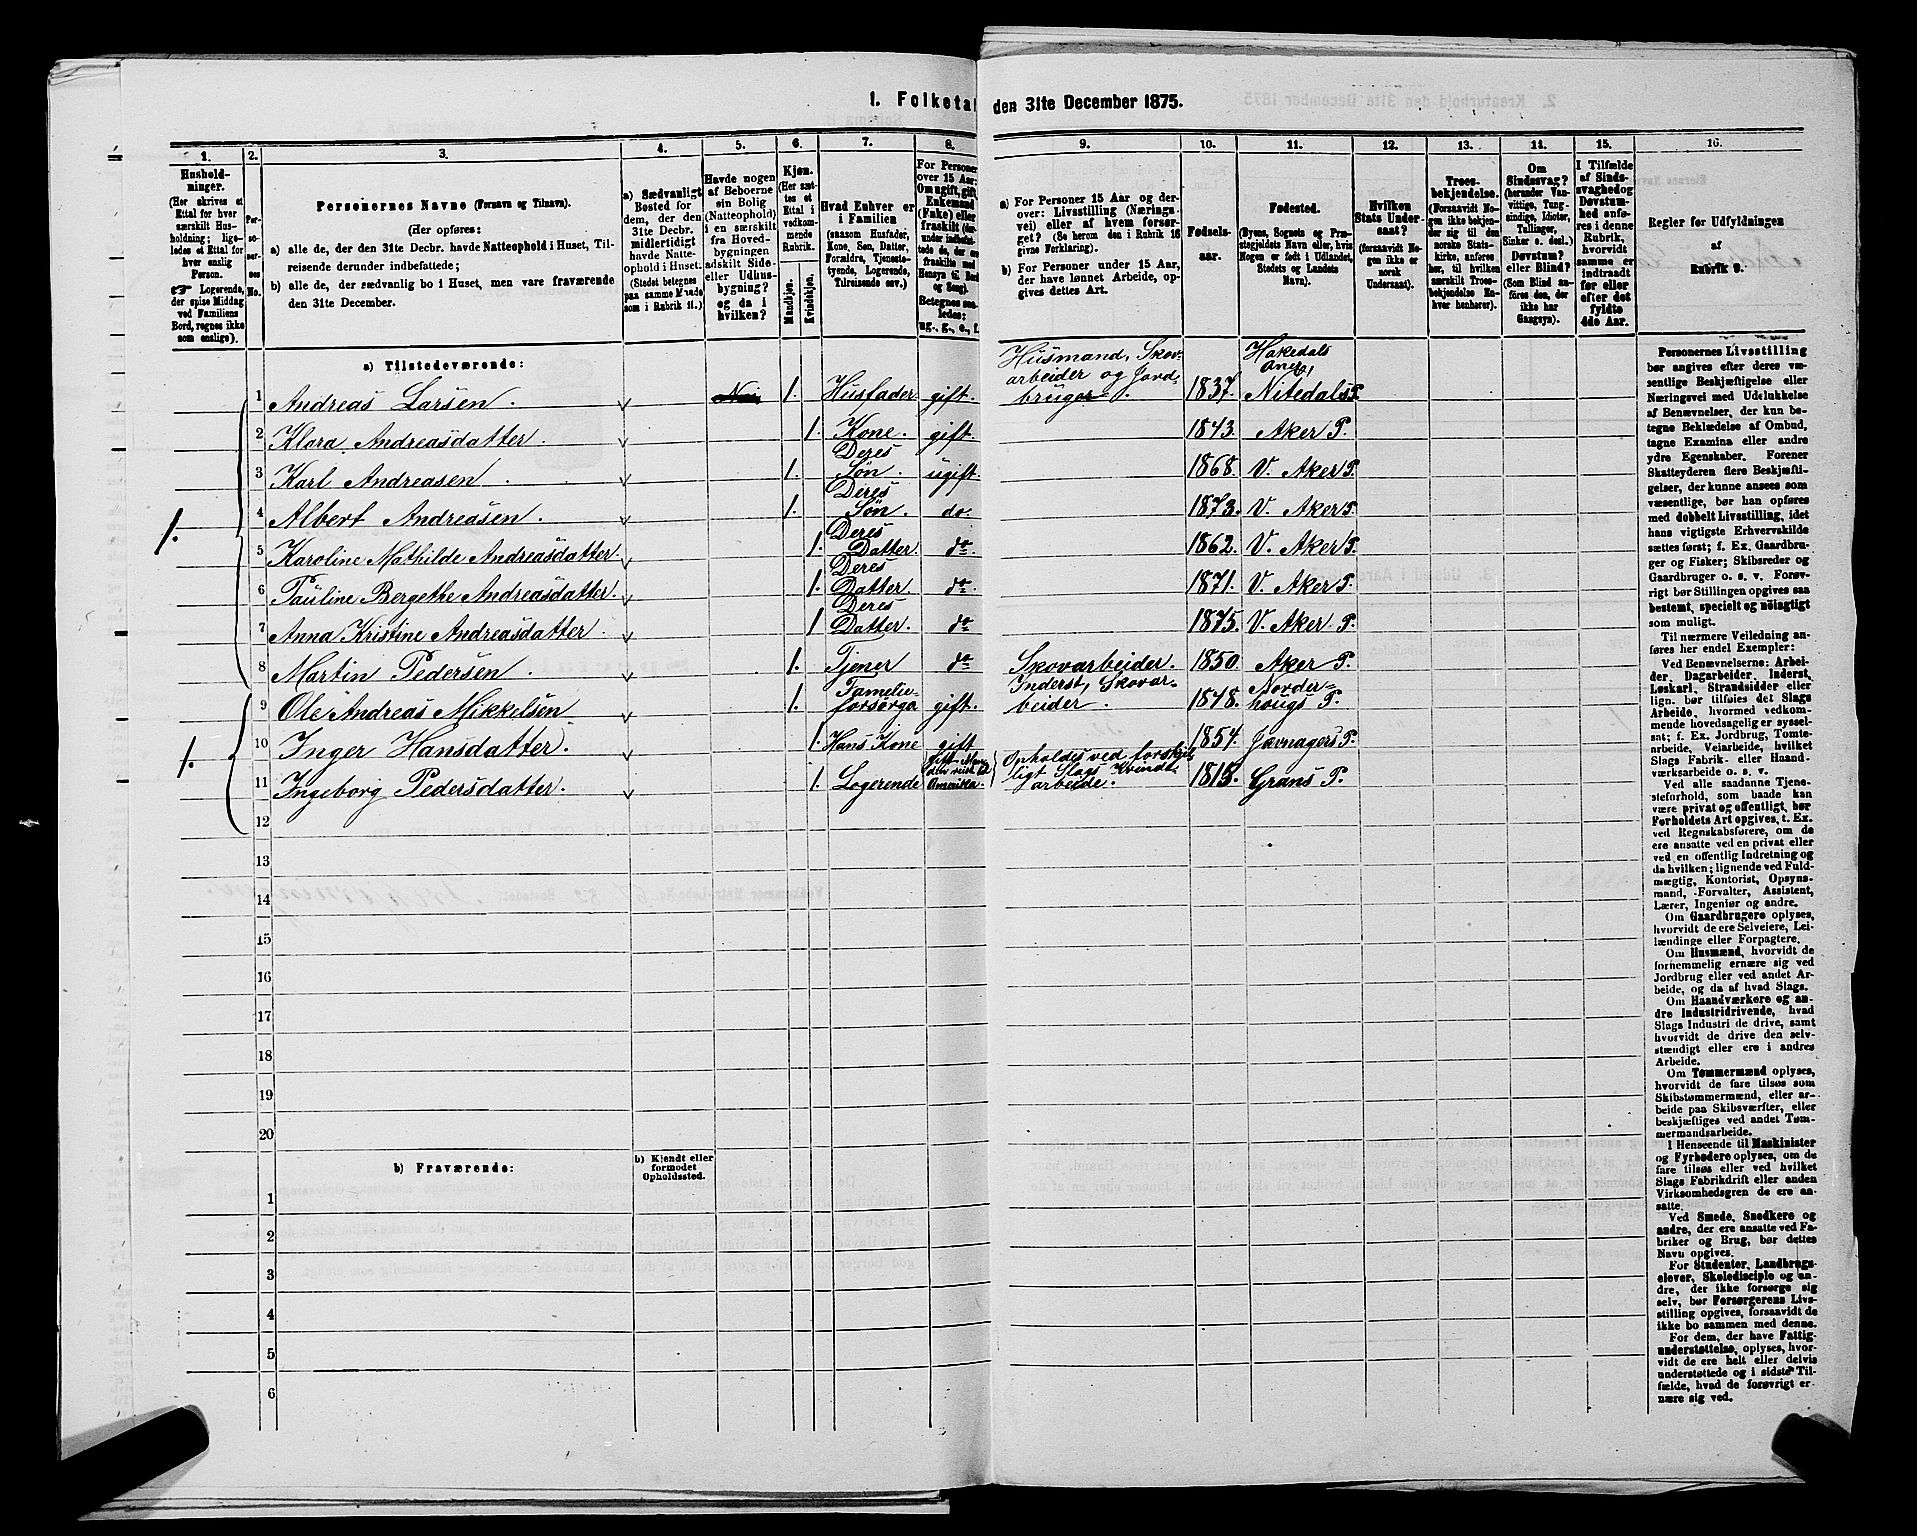 1. Folketal
den 31te December 1875.
1.
2.
3.
4.
5.
6.
7.
8.
9.
10.
11.
12.
13.
14.
15.
16.
Hushold-
ninger.
(Her skrives et
Ettal for hver
særskilt Hus-
holdning; lige-
ledes et Ettal
for hver enslig
Person.
Logerende,
der spise Middag
ved Familiens
Bord, regnes ikke
som enslige).
Per-
so-
ner-
nes
No.
Personernes Navne (Fornavn og Tilnavn).
(Her opføres:
a) alle de, der den 31te Decbr. havde Natteophold i Huset, Til-
reisende derunder indbefattede;
b) alle de, der sædvanlig bo i Huset, men vare fraværende
den 31te December.
a) Sædvanligt
Bosted for
dem, der den
31te Decbr.
midlertidigt
havde Natte-
ophold i Huset.
(Stedet betegnes
paa samme Maade
som i Rubrik 11.)
Havde nogen
af Beboerne
sin Bolig
(Natteophold)
i en særskilt
fra Hoved-
bygningen
adskilt Side-
eller Udhus-
bygning?
og da i
hvilken?
Kjøn.
(Her sæt-
tes et
Ettal i
vedkom-
mende
Rubrik.
Mandkjøn.
Kvindekjøn.
Hvad Enhver er
i Familien
(saasom Husfader,
Kone, Søn, Datter,
Forældre, Tjeneste-
tyende, Logerende,
Tilreisende osv.)
For Personer
over 15 Aar:
Om ugift, gift,
Enkemand
(Enke) eller
fraskilt
Betegnes saa-
ledes:
ug., g., e., f.
a) For Personer 15 Aar og der-
over: Livsstilling (Nærings-
vei) eller af hvem forsør-
get? (Se herom den i Rubrik 16
givne Forklaring).
b) For Personer under 15 Aar,
der have lønnet Arbeide, op-
gives dettes Art.
Fødsels-
aar.
Fødested.
(Byens, Sognets og Præ-
stegjeldets Navn eller, hvis
Nogen er født i Udlandet,
Stedets og Landets
Navn).
Hvilken
Stats Under-
saat?
(forsaavidt No-
gen ikke er
norsk
Undersaat).
Troes-
bekjendelse.
(Forsaavidt No-
gen ikke bekjen-
der sig til den
norske Stats-
kirke, anføres
her, til hvilken
særskilt Troes-
bekjendelse En-
hver henhører).
Om
Sindssvag?
(herunder Van-
vittige, Tung-
sindige, Idioter,
Tullinger,
Sinker o. desl.)
Døvstum?
eller Blind?
(Som Blind an-
føres den, der
ikke har
Gangsyn).
I Tilfælde
af Sinds-
svaghed og
Døvstum-
hed anfø-
res i denne
Rubrik,
hvorvidt
samme er
indtraadt
før eller
efter det
fyldte
4de Aar.
Regler for Udfyldningen
af
Rubrik 9.
a) Tilstedeværende:
1. 1 Andreas Larsen. Nei 1. Husfader gift. Husmand, Skov-
arbeider og Jord-
bruger. 1837. Hakedals
Anex,
Nitedals P.
2 Klara Andreasdatter. 1. Kone. gift. 1843. Aker P.
3 Karl Andreasen. 1. Deres
Søn. ugift. 1868. V. Aker P.
4 Albert Andreasen. 1. Deres
Søn. do. 1873. V. Aker P.
5 Karoline Mathilde Andreasdatter. 1. Deres
Datter. do. 1862. V. Aker P.
6 Pauline Bergethe Andreasdatter. 1. Deres
Datter. do. 1871. V. Aker P.
7 Anna Kristine Andreasdatter. 1. Deres
Datter. do. 1875. V. Aker P.
8 Martin Pedersen. 1. Tjener do Skovarbeider. 1850. Aker P.
1. 9 Ole Andreas Mikkelsen 1. Familie-
forsørga gift. Inderst, Skovar-
beider. 1848. Norder-
hougs P.
10 Inger Hansdatter. 1. Hans Kone gift 1854. Jævnagers P.
11 Ingeborg Pedersdatter. 1. Logerende gift. Man-
den reist til
Amerika. Opholdes ved forskjel-
ligt Slags Kvindt
arbeide. 1815. Grans P.
12
13
14
15
16
17
18
19
20
b) Fraværende:
b) Kjendt eller
formodet
Opholdssted.
1
2
3
4
5
6
Personernes Livsstilling
bør angives efter deres væ-
sentlige Beskjæftigelse eller
Næringsvei med Udelukkelse
af Benævnelser, der kun be-
tegne Beklædelse af Ombud,
tagne Examina eller andre
ydre Egenskaber. Forener
Skatteyderen flere Beskjæfti-
gelser, der kunne ansees som
væsentlige, bør han opføres
med dobbelt Livsstilling, idet
hans vigtigste Erhvervskilde
sættes først; f. Ex. Gaardbru-
ger og Fisker; Skibsreder og
Gaardbruger o. s. v. Forøv-
rigt bør Stillingen opgives saa
bestemt, specielt og nøiagtigt
som muligt.
Til nærmere Veiledning an-
føres her endel Exempler:
Ved Benævnelserne: Arbei-
der, Dagarbeider, Inderst,
Løskarl, Strandsidder eller
lign. bør tilføies det Slags
Arbeide, hvormed vedkom-
mende hovedsagelig er syssel-
sat; f. Ex. Jordbrug, Tomte-
arbeide, Veiarbeide, hvilket
Slags Fabrik- eller Haand-
værksarbeide o. s. v.
Ved alle saadanne Tjene-
steforhold, som baade kan
være privat og offentligt, bør
Forholdets Art opgives, t. Ex.
ved Regnskabsførere, om de
ere ansatte ved en privat eller
ved en offentlig Indretning og
da hvilken; lignende ved Fuld-
mægtig, Kontorist, Opsyns-
mand, Forvalter, Assistent,
Lærer, Ingeniør og andre.
Om Gaardbrugere oplyses,
hvorvidt de ere Selveiere, Lei-
lændinge eller Forpagtere.
Om Husmænd, hvorvidt de
fornemmelig ernære sig ved
Jordbrug eller ved andet Ar-
beide, og da af hvad Slags.
Om Haandværkere og an-
dre Industridrivende, hvad
Slags Industri de drive, samt
hvorvidt de drive den selv-
stændigt eller ere i andres
Arbeide.
Om Tømmermænd oplyses,
hvorvidt de fare tilsøs som
Skibstømmermænd, eller ar-
beide paa Skibsværfter, eller
beskjæftiges ved andet Tøm-
mermandsarbeide.
I Henseende til Maskinister
og Fyrbødere oplyses, om de
fare tilsøs eller ved hvilket
Slags Fabrikdrift eller anden
Virksomhedsgren de ere an-
satte.
Ved Smede, Snedkere og
andre, der ere ansatte ved Fa-
briker og Brug, bør dettes
Navn opgives.
For Studenter, Landbrugs-
elever, Skoledisciple og an-
dre, der ikke forsørge sig
selv, bør Forsørgerens Livs-
stilling opgives, forsaavidt de
ikke bo sammen med denne.
For dem, der have Fattig-
understøttelse, oplyses, hvor-
vidt de ere helt eller delvis
understøttede og i sidste Til-
fælde, hvad de forøvrigt er-
nære sig ved.